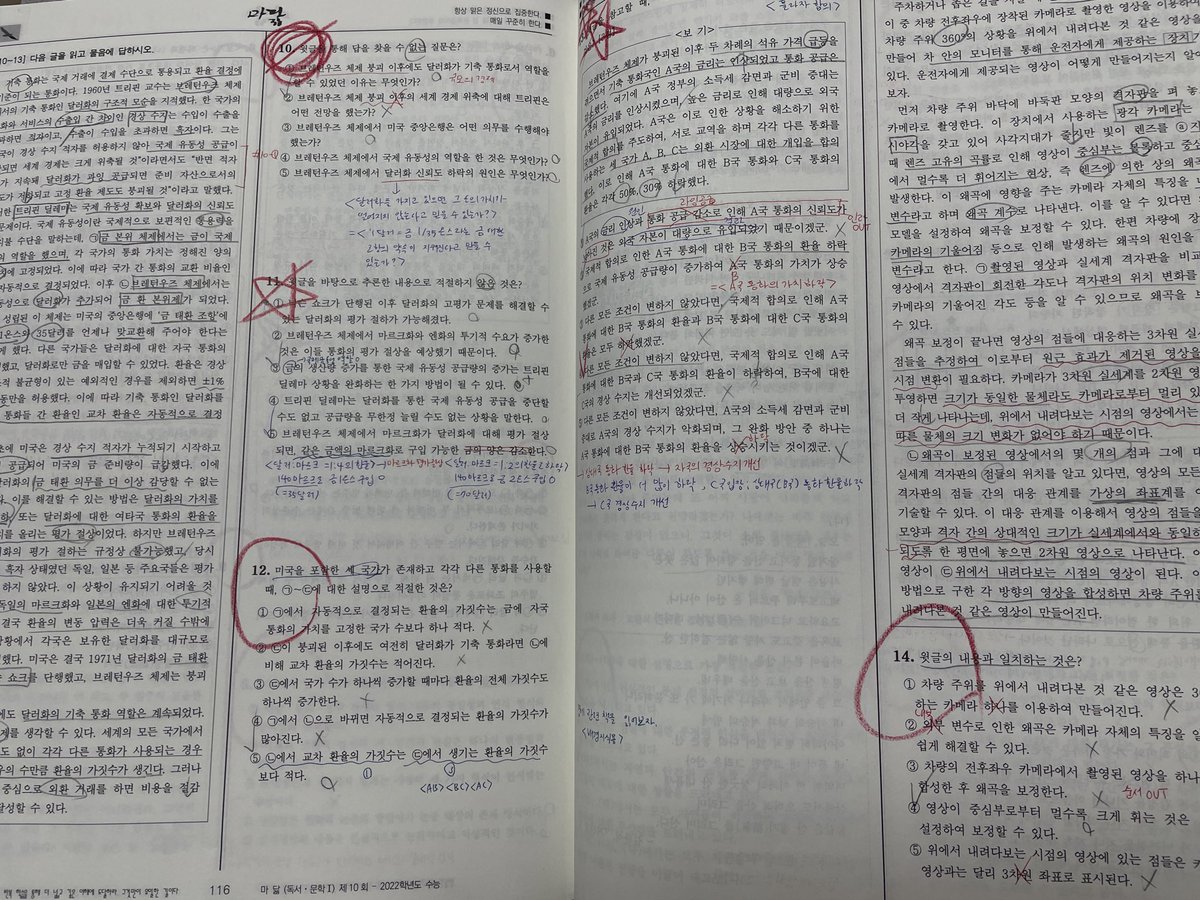 마닳
항상 맑은 정신으로 집중한다.
매일 꾸준히 한다.
10~13] 다음 글을 읽고 물음에 답하시오.
기축 통화는 국제 거래에 결제 수단으로 통용되고 환율 결정에
기준이 되는 통화이다. 1960년 트리핀 교수는 브레턴우즈 체제
에서의 기축 통화인 달러화의 구조적 모순을 지적했다. 한 국가의
재화와 서비스의 수출입 간 차이인 경상 수지는 수입이 수출을
초과하면 적자이고, 수출이 수입을 초과하면 흑자이다. 그는
국이 경상 수지 적자를 허용하지 않아 국제 유동성 공급이
되면 세계 경제는 크게 위축될 것"이라면서도 "반면 적자
가 지속돼 달러화가 과잉 공급되면 준비 자산으로서의
도가 저하되고 고정 환율 제도도 붕괴될 것"이라고 말했다.
한 트리핀 딜레마는 국제 유동성 확보와 달러화의 신뢰도
문제이다. 국제 유동성이란 국제적으로 보편적인 통용력을
지불 수단을 말하는데, ㉠금 본위 체제에서는 금이 국제
역할을 했으며, 각 국가의 통화 가치는 정해진 양의
에 고정되었다. 이에 따라 국가 간 통화의 교환 비율인
자동적으로 결정되었다. 이후 ㉡브레턴우즈 체제에서는
동성으로 달러화가 추가되어 '금 환 본위제'가 되었다.
성립된 이 체제는 미국의 중앙은행에 '금 태환 조항'에
1온스와 35달러를 언제나 맞교환해 주어야 한다는
게 했다. 다른 국가들은 달러화에 대한 자국 통화의
고정했고, 달러화로만 금을 매입할 수 있었다. 환율은 경상
적 불균형이 있는 예외적인 경우를 제외하면 ±1%
변동만을 허용했다. 이에 따라 기축 통화인 달러화를
통화들 간 환율인 교차 환율은 자동적으로 결정
초에 미국은 경상 수지 적자가 누적되기 시작하고
공급되어 미국의 금 준비량이 급감했다. 이에
의 금 태환 의무를 더 이상 감당할 수 없는
이를 해결할 수 있는 방법은 달러화의 가치를
하, 또는 달러화에 대한 여타국 통화의 환율을
치를 올리는 평가 절상이었다. 하지만 브레턴우즈
화의 평가 절하는 규정상 불가능했고, 당시
흑자 상태였던 독일, 일본 등 주요국들은 평가
하지 않았다. 이 상황이 유지되기 어려울 것
독일의 마르크화와 일본의 엔화에 대한 투기적
결국 환율의 변동 압력은 더욱 커질 수밖에
상황에서 각국은 보유한 달러화를 대규모로
했다. 미국은 결국 1971년 달러화의 금 태환
쇼크를 단행했고, 브레턴우즈 체제는 붕괴
에도 달러화의 기축 통화 역할은 계속되었다.
제를 생각할 수 있다. 세계의 모든 국가에서
도 없이 각각 다른 통화가 사용되는 경우
우의 수만큼 환율의 가짓수가 생긴다. 그러나
중심으로 외환 거래를 하면 비용을 절감
달성할 수 있다.
10. 윗글을 통해 답을 찾을 수 없는 질문은?
① 브레턴우즈 체제 붕괴 이후에도 달러화가 기축 통화로서 역할을
할 수 있었던 이유는 무엇인가?
규모의 경제
② 브레턴우즈 체제 붕괴 이후의 세계 경제 위축에 대해 트리핀은
어떤 전망을 했는가?
③ 브레턴우즈 체제에서 미국 중앙은행은 어떤 의무를 수행해야
했는가?
④ 브레턴우즈 체제에서 국제 유동성의 역할을 한 것은 무엇인가?
⑤ 브레턴우즈 체제에서 달러화 신뢰도 하락의 원인은 무엇인가?
<달러화를 가지고 있으면 그 돈의 가치가
떨어지지 않는다고 믿을 수 있는가?>
=<'1달러 = 금 1/35온스'라는 금 태환
2한의 약속이 지켜진다고 믿을 수
있는가?>
11. 윗글을 바탕으로 추론한 내용으로 적절하지 않은 것은?
① 닉슨 쇼크가 단행된 이후 달러화의 고평가 문제를 해결할 수
있는 달러화의 평가 절하가 가능해졌다.
② 브레턴우즈 체제에서 마르크화와 엔화의 투기적 수요가 증가한
것은 이들 통화의 평가 절상을 예상했기 때문이다.
③ 금의 생산량 증가를 통한 국제 유동성 공급량의 증가는 트리핀
딜레마 상황을 완화하는 한 가지 방법이 될 수 있다.
④ 트리핀 딜레마는 달러화를 통한 국제 유동성 공급을 중단할
수도 없고 공급량을 무한정 늘릴 수도 없는 상황을 말한다.
⑤ 브레턴우즈 체제에서 마르크화가 달러화에 대해 평가 절상
되면, 같은 금액의 마르크화로 구입 가능한 금의 양은 감소한다.
140마르크로 금 1온스 구입
(=35달러)
140마르크로 금 2온스 구입
(=70달러)
12. 미국을 포함한 세 국가가 존재하고 각각 다른 통화를 사용할
때, ㉠~㉢에 대한 설명으로 적절한 것은?
① ㉠에서 자동적으로 결정되는 환율의 가짓수는 금에 자국
통화의 가치를 고정한 국가 수보다 하나 적다.
② ㉡이 붕괴된 이후에도 여전히 달러화가 기축 통화라면 ㉡에
비해 교차 환율의 가짓수는 적어진다.
③ ㉢에서 국가 수가 하나씩 증가할 때마다 환율의 전체 가짓수도
하나씩 증가한다.
④ ㉠에서 ㉡으로 바뀌면 자동적으로 결정되는 환율의 가짓수가
많아진다.
⑤ ㉡에서 교차 환율의 가짓수는 ㉢에서 생기는 환율의 가짓수
보다 적다.
① ③
<AB> <BC> <AC>
116 마 닳 (독서 · 문학Ⅰ) 제 10 회 - 2022학년도 수능
<보 기>
브레턴우즈 체제가 붕괴된 이후 두 차례의 석유 가격 급등을
겪으면서 기축 통화국인 A국의 금리는 인상되었고 통화 공급은
감소했다. 여기에 A국 정부의 소득세 감면과 군비 증대는
A국의 금리를 인상시켰으며, 높은 금리로 인해 대량으로 외국
자본이 유입되었다. A국은 이로 인한 상황을 해소하기 위한
국제적 합의를 주도하여, 서로 교역을 하며 각각 다른 통화를
사용하는 세 국가 A, B, C는 외환 시장에 대한 개입을 합의
했다. 이로 인해 A국 통화에 대한 B국 통화와 C국 통화의
환율은 각각 50%, 30% 하락했다.
A국의 금리 인상과 통화 공급 감소로 인해 A국 통화의 신뢰도가
낮아진 것은 외국 자본이 대량으로 유입되었기 때문이겠군.
국제적 합의로 인한 A국 통화에 대한 B국 통화의 환율 하락
으로 국제 유동성 공급량이 증가하여 A국 통화의 가치가 상승
했겠군.
=<A국 통화의 가치 하락>
다른 모든 조건이 변하지 않았다면, 국제적 합의로 인해 A국
통화에 대한 B국 통화의 환율과 B국 통화에 대한 C국 통화의
환율은 모두 하락했겠군.
다른 모든 조건이 변하지 않았다면, 국제적 합의로 인해 A국
통화에 대한 B국과 C국 통화의 환율이 하락하여, B국에 대한
C국의 경상 수지는 개선되었겠군.
다른 모든 조건이 변하지 않았다면, A국의 소득세 감면과 군비
증대로 A국의 경상 수지가 악화되며, 그 완화 방안 중 하나는
A국 통화에 대한 B국 통화의 환율을 상승시키는 것이겠군.
하락
→ C국 경상수지 개선
<배경지식용>
이 중 차량 전후좌우에 장착된 카메라로 촬영한 영상을 이용하여
차량 주위 360°의 상황을 위에서 내려다본 것 같은 영상을
만들어 차 안의 모니터를 통해 운전자에게 제공하는 장치가
있다. 운전자에게 제공되는 영상이 어떻게 만들어지는지 알아
보자.
먼저 차량 주위 바닥에 바둑판 모양의 격자판을 펴 놓고
카메라로 촬영한다. 이 장치에서 사용하는 광각 카메라는
시야각을 갖고 있어 사각지대가 줄지만 빛이 렌즈를 ⓐ
때 렌즈 고유의 곡률로 인해 영상이 중심부는 볼록하고 중심
에서 멀수록 더 휘어지는 현상, 즉 렌즈에 의한 상의 왜곡
생한다. 이 왜곡에 영향을 주는 카메라 자체의 특징을 내
변수라고 하며 왜곡 계수로 나타낸다. 이를 알 수 있다면
모델을 설정하여 왜곡을 보정할 수 있다. 한편 차량에 장
카메라의 기울어짐 등으로 인해 발생하는 왜곡의 원인을
변수라고 한다. ㉠촬영된 영상과 실세계 격자판을 비교
영상에서 격자판이 회전한 각도나 격자판의 위치 변화를
카메라의 기울어진 각도 등을 알 수 있으므로 왜곡을 보
수 있다.
왜곡 보정이 끝나면 영상의 점들에 대응하는 3차원 실세
점들을 추정하여 이로부터 원근 효과가 제거된 영상을
시점 변환이 필요하다. 카메라가 3차원 실세계를 2차원 영
투영하면 크기가 동일한 물체라도 카메라로부터 멀리 있
더 작게 나타나는데, 위에서 내려다보는 시점의 영상에서는
따른 물체의 크기 변화가 없어야 하기 때문이다.
㉡왜곡이 보정된 영상에서의 몇 개의 점과 그에 대
실세계 격자판의 점들의 위치를 알고 있다면, 영상의 모든
격자판의 점들 간의 대응 관계를 가상의 좌표계를
기술할 수 있다. 이 대응 관계를 이용해서 영상의 점들을
모양과 격자 간의 상대적인 크기가 실세계에서와 동일하
되도록 한 평면에 놓으면 2차원 영상으로 나타난다. 이
영상이 ㉢위에서 내려다보는 시점의 영상이 된다. 이
방법으로 구한 각 방향의 영상을 합성하면 차량 주위를
내려다본 것 같은 영상이 만들어진다.
14. 윗글의 내용과 일치하는 것은?
① 차량 주위를 위에서 내려다본 것 같은 영상은
하는 카메라 하나를 이용하여 만들어진다.
② 외부 변수로 인한 왜곡은 카메라 자체의 특징을 알
쉽게 해결할 수 있다.
③ 차량의 전후좌우 카메라에서 촬영된 영상을 하나
합성한 후 왜곡을 보정한다.
순서 OUT
④ 영상이 중심부로부터 멀수록 크게 휘는 것은
설정하여 보정할 수 있다.
⑤ 위에서 내려다보는 시점의 영상에 있는 점들은
영상과는 달리 3차원 좌표로 표시된다.